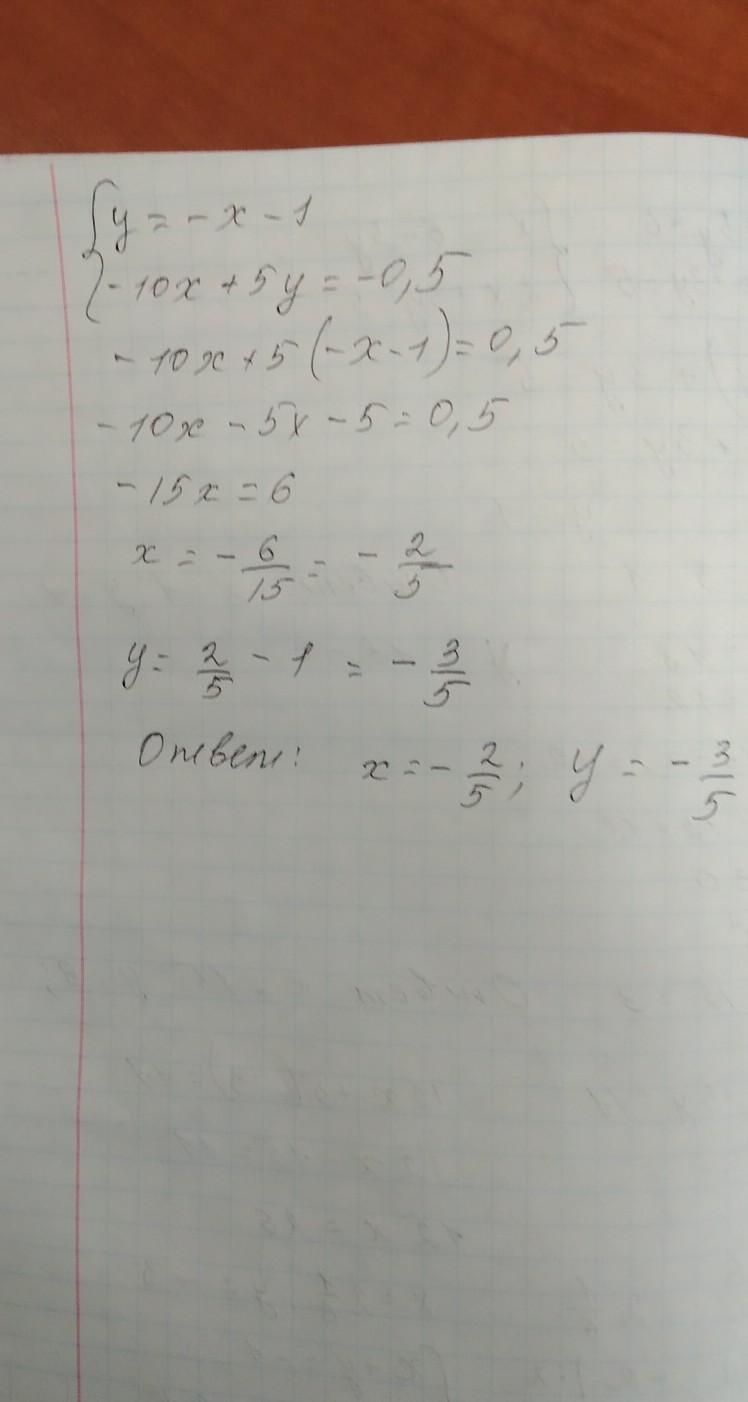 {y = -x - 1
-10x + 5y = -0,5
-10x + 5(-x-1) = 0,5
-10x - 5x - 5 = 0,5
-15x = 6
x = - 6/15 = - 2/5
y = 2/5 - 1 = - 3/5
Ответ: x = - 2/5; y = - 3/5